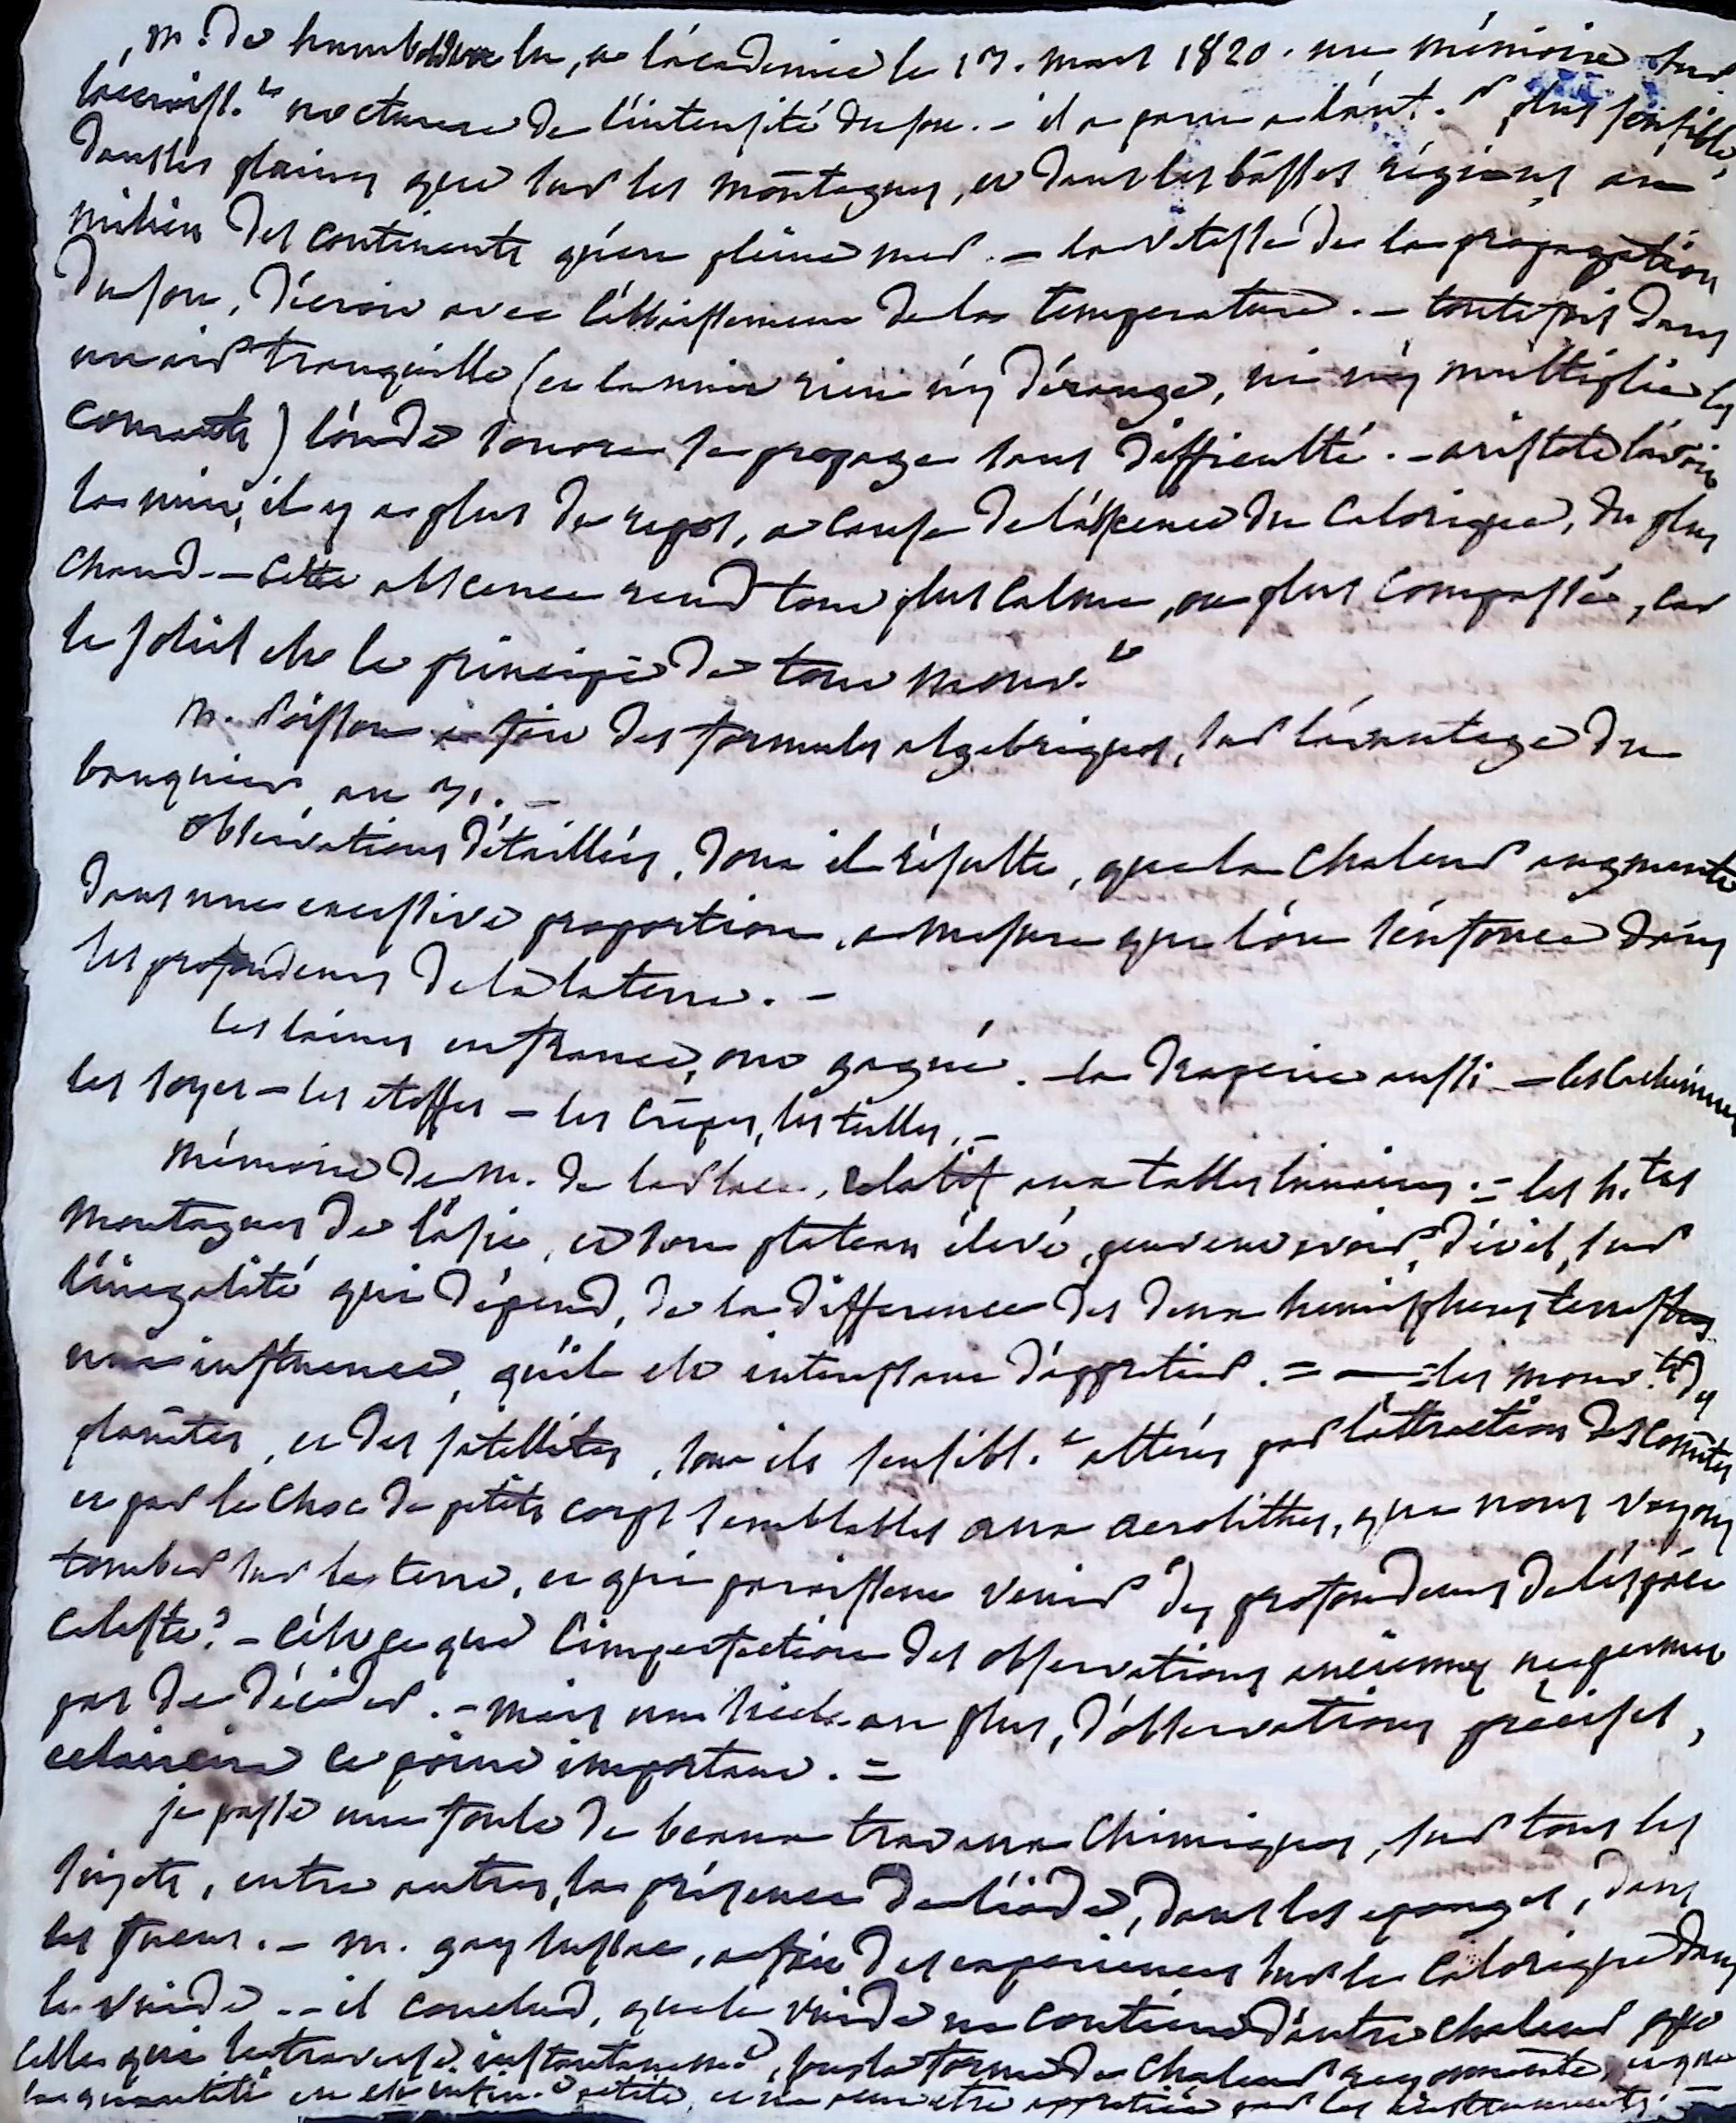 M. de humboldt a lu, a l'academie le 13. mars 1820. un mémoire sur
l'accroiss.t nocturne de l'intensité du son. - il a paru a l'aut.r plus sensible,
dans les plaines que sur les montagnes, et dans les basses régions au
milieu des continents qu'en pleine mer. - la vitesse de la propagation
du son, décroit avec l'abbaissement de la temperature. - toutefois dans
un air tranquille (et la nuit rien n'y dérange, ni n'y multiplie les
courants) l'onde sonore se propage sans difficulté. - aristote l'avoit
la nuit, il y a plus de repos, a cause de l'abscence du calorique, du plus
chaud. - Cette abscence rend tout plus calme, ou plus compassé, car
le soleil est le principe de tout mouv.t
M. Poisson a fait des formules algebriques, sur l'avantage du
banquier, au 31. -
observations détaillées, dont il résulte, que la chaleur augmente
dans une excessive proportion, a mesure que l'on s'enfonce dans
les profondeurs de la la terre. -
les laines en france, ont gagné. - la draperie aussi - les cachemires
les soyes - les étoffes - les crêpes, les tulles. -
Mémoire de M. de la Place, relatif aux tables lunaires. = les h.tes
montagnes de l'asie, et son plateau élevé, peuvent avoir, dit-il, sur
l'inégalité qui dépend, de la difference des deux hemispheres terrestres
une influence, qu'il est interessant d'apprétier. = — = les mouv.ts des
planètes, et des satellites, sont ils sensibl.t altérés par l'attraction des comètes
et par le choc de petits corps semblables aux aerolithes, que nous voyons
tomber sur la terre, et qui paroissent venir des profondeurs de l'espace
celeste? - C'est ce que l'imperfection des observations anciennes ne permet
pas de décider. - mais un siecle au plus, d'observations précises,
eclaircira ce point important. =
je passe une foule de beaux travaux chimiques, sur tous les
sujets, entre autres, la présence de l'iode, dans les eponges, dans
les fucus. - M. gay lussac, a fait des experiences sur le calorique dans
le vuide. - il conclud, que le vuide ne contient d'autre chaleur que
celle qui le traverse instantanem.t, sous la forme de chaleur rayonnante, et que
la quantité en est infin.t petite, et ne peut etre appretiée par les instruments. -